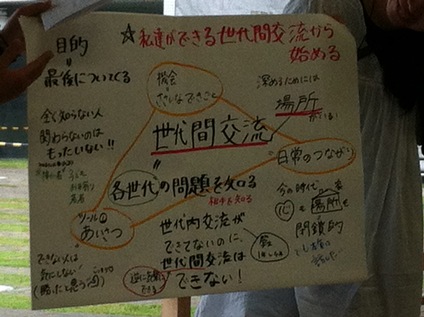 ☆私達ができる世代間交流から
始める
目的
"
最後についてくる
機会
ささいなできごと
深めるためには
場所
がいる!
全く知らない人
関わらないのは
もったいない!!
世代間交流
"
日常のつながり
各世代の問題を知る
相手を知る
ツール①
あいさつ
今の時代
心も場所も
閉鎖的
世代内交流が
できてないのに、
世代間交流は
できない!
できない人は
気にしない!
逆に気軽に
できる